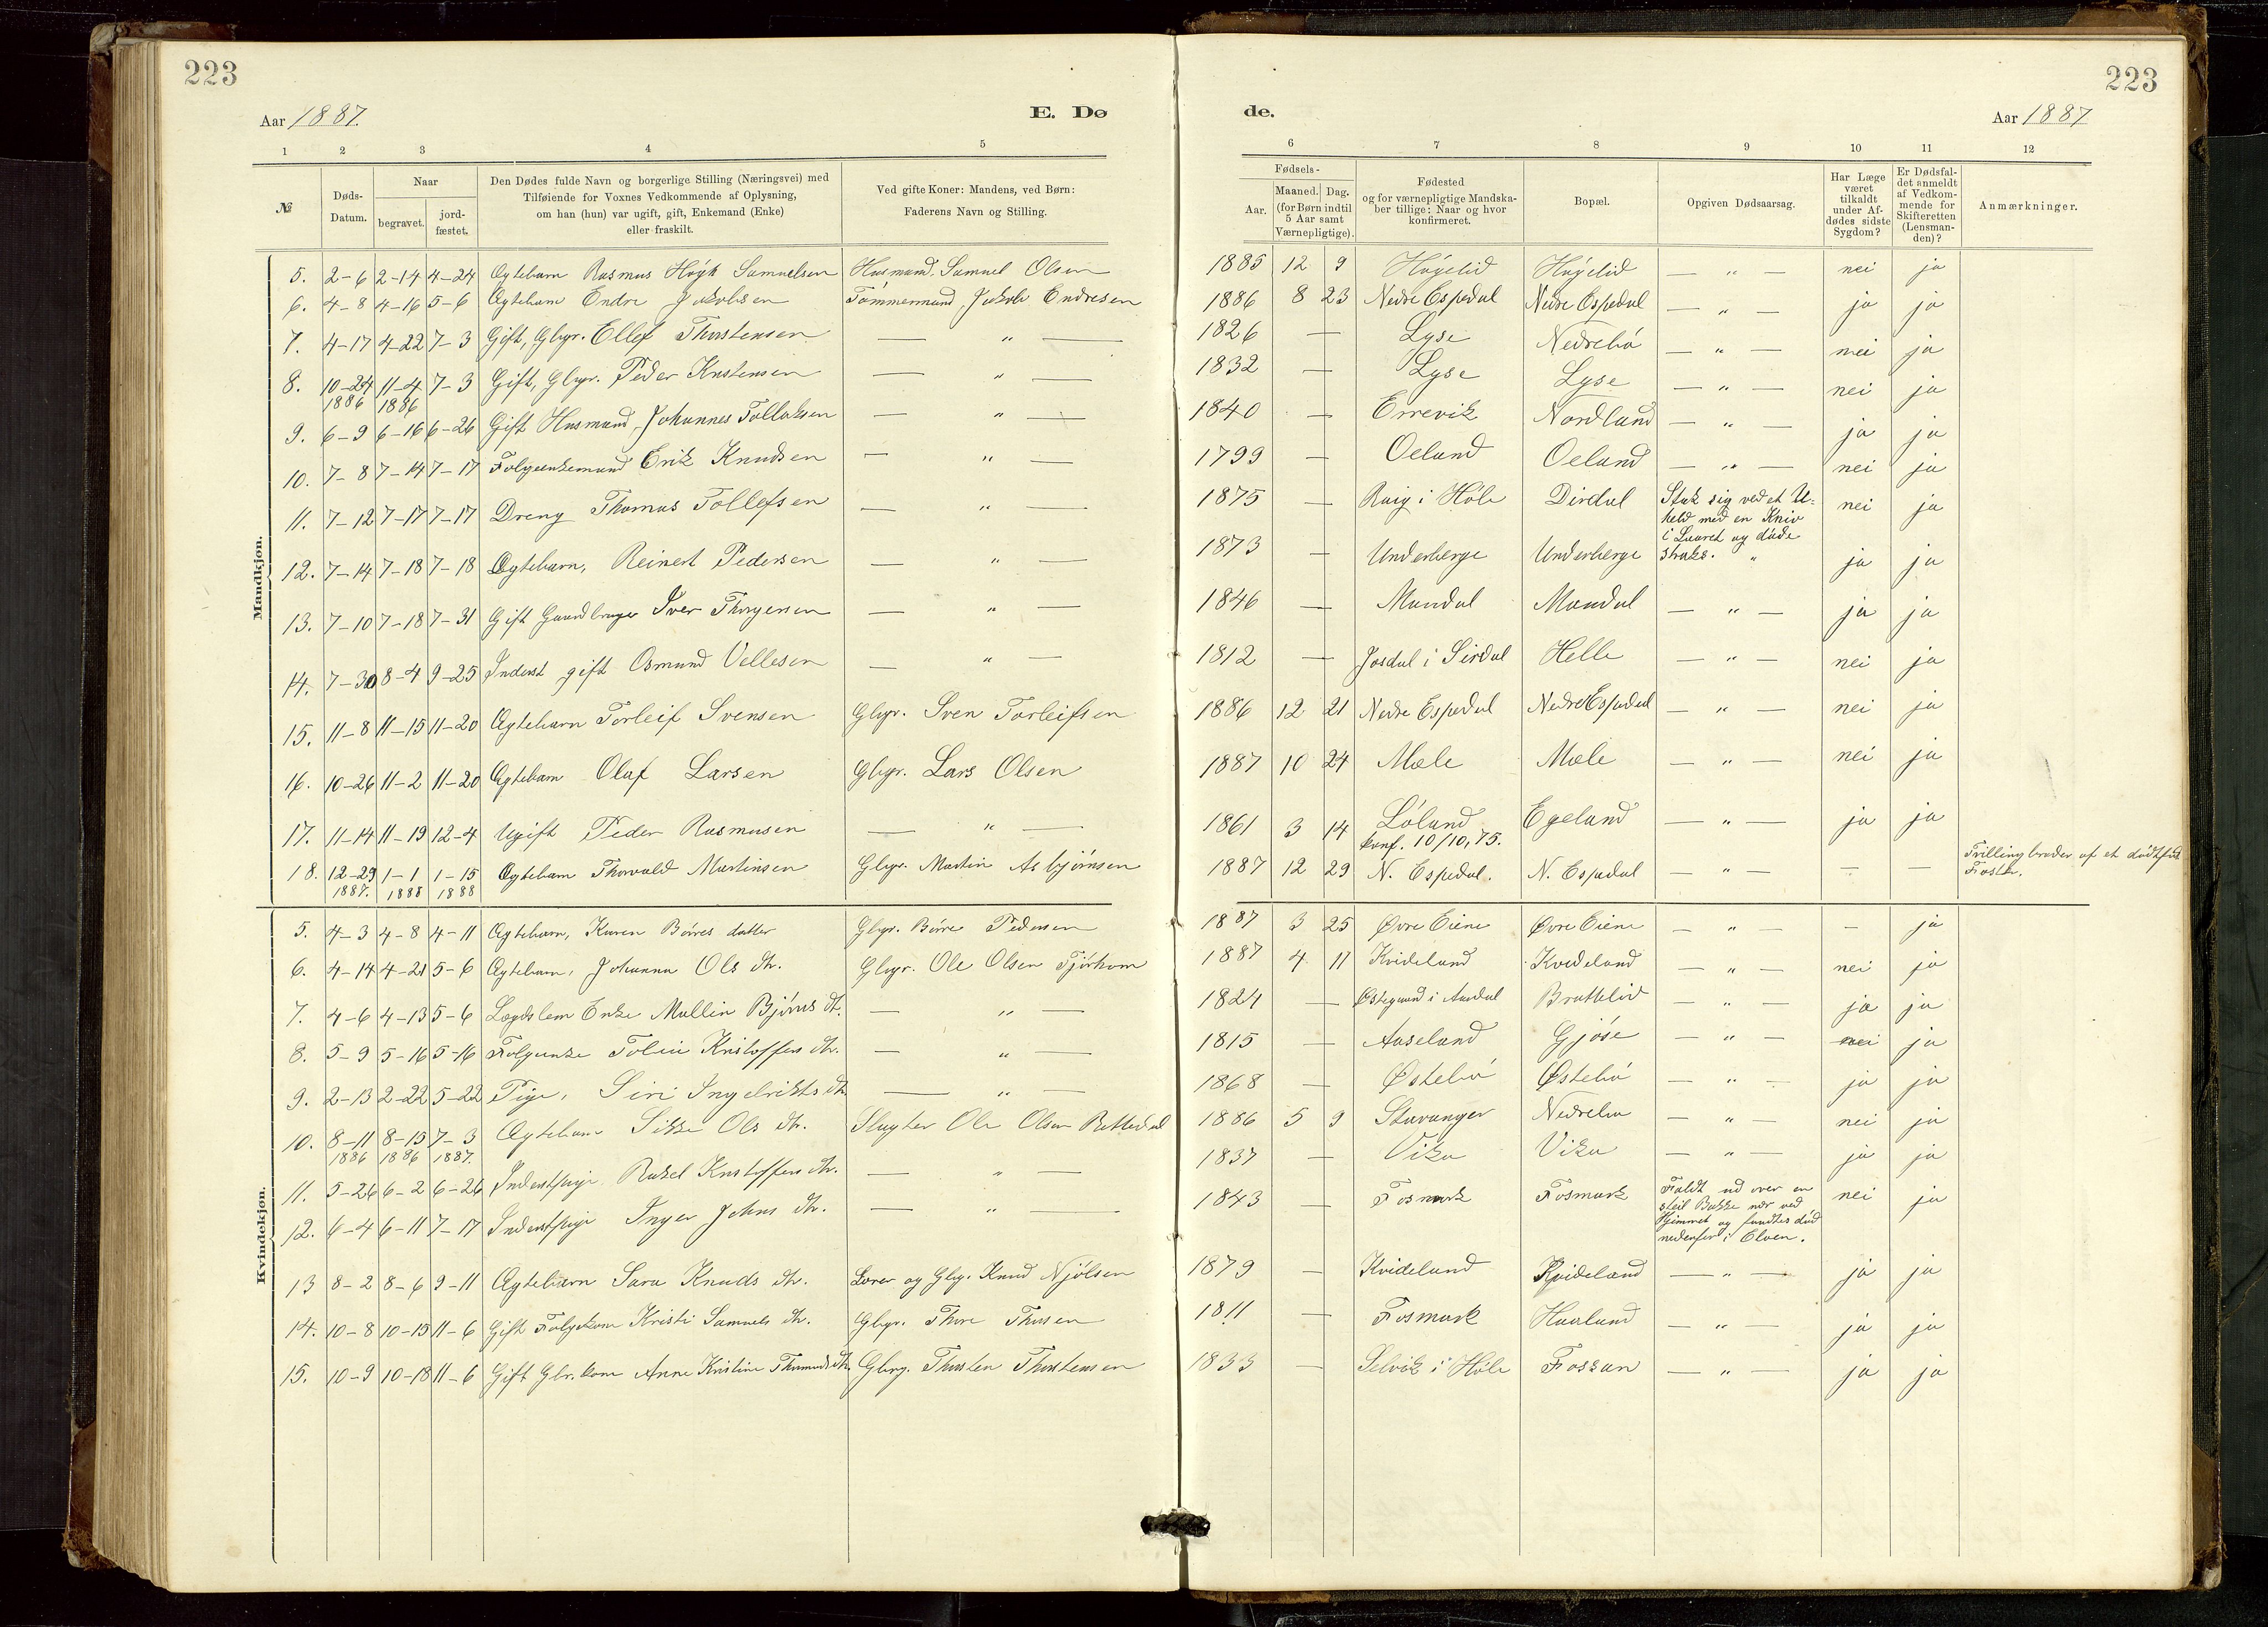 223
Aar 1887.
E. Dø
1 2 3 4 5
№
Døds-Datum.
Naar
begravet.
jord-fæstet.
Den Dødes fulde Navn og borgerlige Stilling (Næringsvei) med
Tilføiende for Voxnes Vedkommende af Oplysning,
om han (hun) var ugift, gift, Enkemand (Enke)
eller fraskilt.
Ved gifte Koner: Mandens, ved Børn:
Faderens Navn og Stilling.
Mandkjøn.
5. 2-6 2-14 4-24 Ægtebarn Rasmus Høyk Samuelsen Husmand Samuel Olsen
6. 4-8 4-16 5-6 Ægtebarn Endre Jakobsen Tømmermand, Jakob Endresen
7. 4-17 4-22 7-3 Gift, Gbgr. Ellef Thorstensen — „ —
8. 10-24 11-4 7-3 Gift, Gbgr. Peder Kristensen — „ —
1886 1886
9. 6-9 6-16 6-26 Gift Husmand, Johannes Tollaksen — „ —
10. 7-8 7-14 7-17 Folgeenkemand Erik Knudsen — „ —
11. 7-12 7-17 7-17 Dreng Thomas Tollefsen — „ —
12. 7-14 7-18 7-18 Ægtebarn, Reinert Pedersen — „ —
13. 7-10 7-18 7-31 Gift Gaardbruger Iver Thorgersen — „ —
14. 7-30 8-4 9-25 Inderst gift Osmund Vellesen — „ —
15. 11-8 11-15 11-20 Ægtebarn Torleif Svensen Gbgr. Sven Torleifsen
16. 10-26 11-2 11-20 Ægtebarn Olaf Larsen Gbgr. Lars Olsen
17. 11-14 11-19 12-4 Ugift Peder Rasmusen — „ —
18. 12-29 1-1 1-15 Ægtebarn Thorvald Martinsen Gbgr. Martin Asbjørnsen
1887. 1888 1888
Kvindekjøn.
5. 4-3 4-8 4-11 Ægtebarn, Karen Børres datter Gbgr. Børre Pedersen
6. 4-14 4-21 5-6 Ægtebarn, Johanna Ols dtr. Gbgr. Ole Olsen Fjørhom
7. 4-6 4-13 5-6 Lægdslem Enke Mallin Bjørns dt. — „ —
8. 5-9 5-16 5-16 Folgeenke Kristoffers dtr. — „ —
9. 2-13 2-22 5-22 Pige, Siri Ingebrikts dtr. — „ —
10. 8-11 8-15 7-3 Ægtebarn Sikke Ols dtr. Slagter Ole Olsen Rettedal
1886 1886 1887.
11. 5-26 6-2 6-26 Inderstpige, Rakel Kristoffers dtr. — „ —
12. 6-4 6-11 7-17 Inderstpige Inger Johns dtr. — „ —
13 8-2 8-6 9-11 Ægtebarn Sara Knuds dtr. Lærer og Gbg. Knud Njølsen
14. 10-8 10-15 11-6 Gift Folgekone Kristi Samuels dtr. Gbgr. Thore Thorsen
15. 10-9 10-18 11-6 Gift Gbr. kone Anne Kristine Thomas dtr. Gbrg. Thorsten Thorstensen
223
de.
Aar 1887
6 7 8 9 10 11 12
Fødsels-
Aar.
Maaned. Dag.
(for Børn indtil
5 Aar samt
Værnepligtige).
Fødested
og for værnepligtige Mandska-
ber tillige: Naar og hvor
konfirmeret.
Bopæl.
Opgiven Dødsaarsag.
Har Læge
været
tilkaldt
under Af-
dødes sidste
Sygdom?
Er Dødsfal-
det anmeldt
af Vedkom-
mende for
Skifteretten
(Lensman-
den)?
Anmærkninger.
1885 12 9 Høyelid Høyelid — „ — nei ja
1886 8 23 Nedre Espedal Nedre Espedal — „ — ja ja
1826 — Lyse Nedrebø — „ — nei ja
1832 — Lyse Lyse — „ — nei ja
1840 — Errevik Nordland — „ — ja ja
1799 — Oeland Oeland — „ — nei ja
1875 — i Høle Dirdal Stak sig ved et U-
held med en Kniv
i Laaret og døde
straks. nei ja
1873 — Underberge Underberge „ ja ja
1846 — Mandal Mandal — „ — ja ja
1812 — Josdal i Sirdal Helle — „ — nei ja
1886 12 21 Nedre Espedal Nedre Espedal — „ — nei ja
1887 10 24 Mæle Mæle — „ — nei ja
1861 3 14 Løland Egeland — „ — ja ja
konf. 10/10, 75.
1887 12 29 N. Espedal. N. Espedal — „ — — — Trillingbroder af et dødtfødt
Foster.
1887 3 25 Øvre Eiene Øvre Eiene — „ — - ja
1887 4 11 Kvideland Kvideland — „ — nei ja
1824 — Østegaard i Aardal Brattelid — „ — ja ja
1815 — Aaseland Gjøse — „ — nei ja
1868 — Østebø Østebø — „ — ja ja
1886 5 9 Stavanger Nedrebø — „ — nei ja
1837 — Vika Vika — „ — ja ja
1843 — Fosmark Fosmark Faldt ud over en
steil Bakke nær ved
Hjemmet og fandtes død
nedenfor i Elven. nei ja
1879 — Kvideland Kvideland — „ — ja ja
1811 — Fosmark Haaland — „ — ja ja
1833 — Selvik i Høle Fossan — „ — ja ja